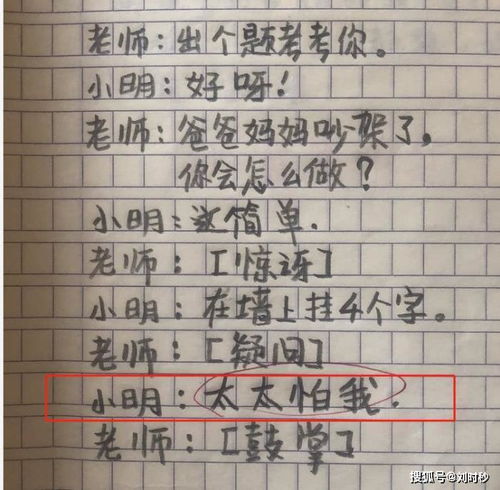 老师：出个题考考你。
小明：好呀！
老师：爸爸妈妈吵架了，
你会怎么做？
小明：这简单．
老师：［惊讶］
小明：在墙上挂4个字。
老师：［疑问］
小明：太太怕我．
老师：［鼓掌］
搜狐号@刘时秒